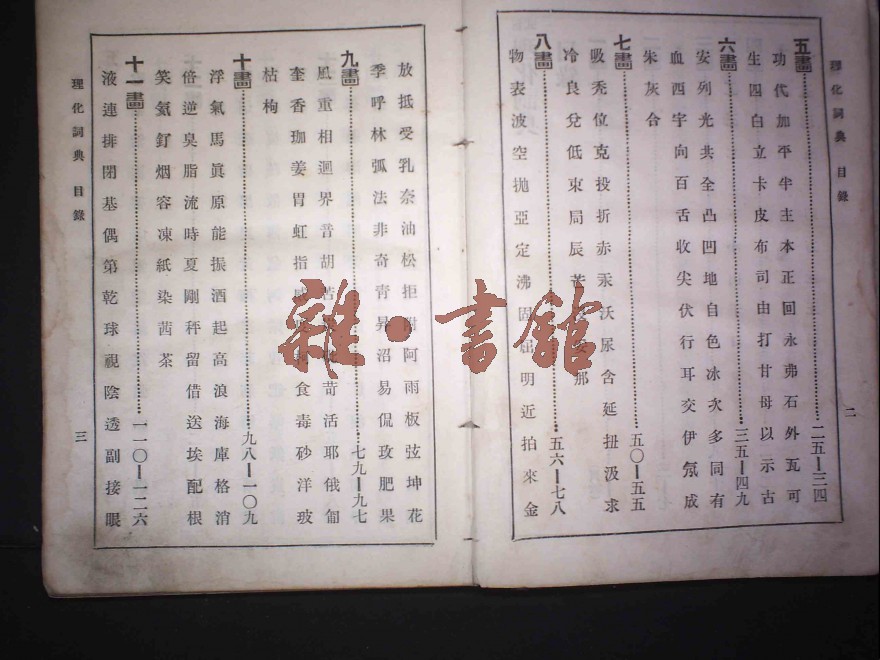 理化詞典 目錄
二
五畫……二五—三四
功代加平半主本正回永弗石外瓦可
生四白立卡皮布司由打甘母以示古
六畫……三五—四九
安列光共全凸凹地自色冰次多同有
血西宇向百舌收尖伏行耳交伊氖成
朱灰合
七畫……五〇—五五
吸禿位克投折赤汞沃尿含延扭汲求
冷良兌低束局辰芒 那
八畫……五六—七八
物表波空拋亞定沸固屈明近拍來金
放抵受乳奈油松拒附阿雨板弦坤花
季呼林弧法非奇青昇沼易侃玫肥果
九畫……七九—九七
風重相迴界音胡苦 苛活耶俄訇
奎香珈姜胃虹指 食毒砂洋玻
枯枸
十畫……九八—一〇九
浮氣馬眞原能振酒起高浪海庫格消
倍逆臭脂流時夏剛秤留借送埃配根
笑氨釘烟容凍紙染茜茶
十一畫……一一〇—一二六
液連排閉基偶第乾球視陰透副接眼
理化詞典 目錄
三
雜·書館